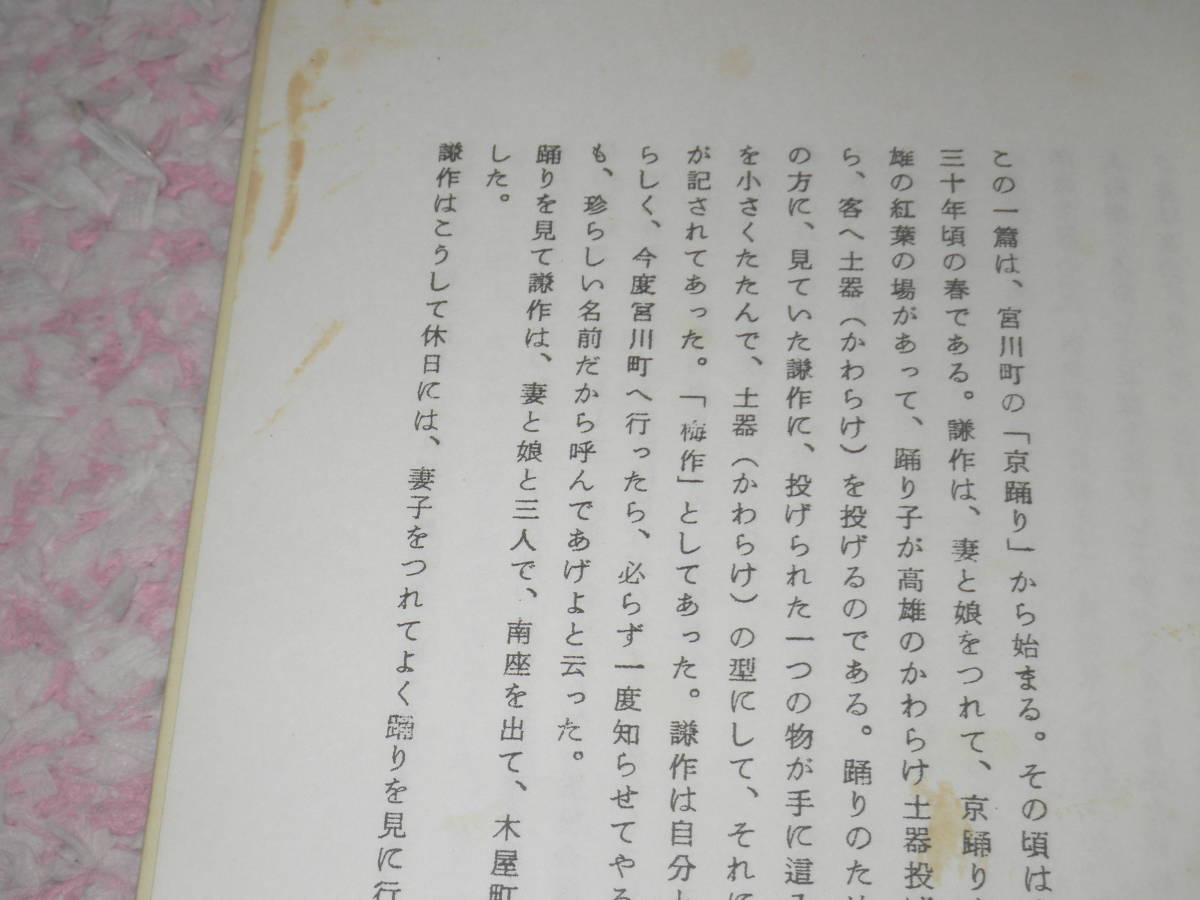 この一篇は、宮川町の「京踊り」から始まる。その頃は
三十年頃の春である。謙作は、妻と娘をつれて、京踊り
雄の紅葉の場があって、踊り子が高雄のかわらけ土器投
ら、客へ土器（かわらけ）を投げるのである。踊りのため
の方に、見ていた謙作に、投げられた一つの物が手に這入
を小さくたたんで、土器（かわらけ）の型にして、それに
が記されてあった。「梅作」としてあった。謙作は自分
らしく、今度宮川町へ行ったら、必らず一度知らせてやる
も、珍らしい名前だから呼んであげよと云った。
踊りを見て謙作は、妻と娘と三人で、南座を出て、木屋町
した。
謙作はこうして休日には、妻子をつれてよく踊りを見に行